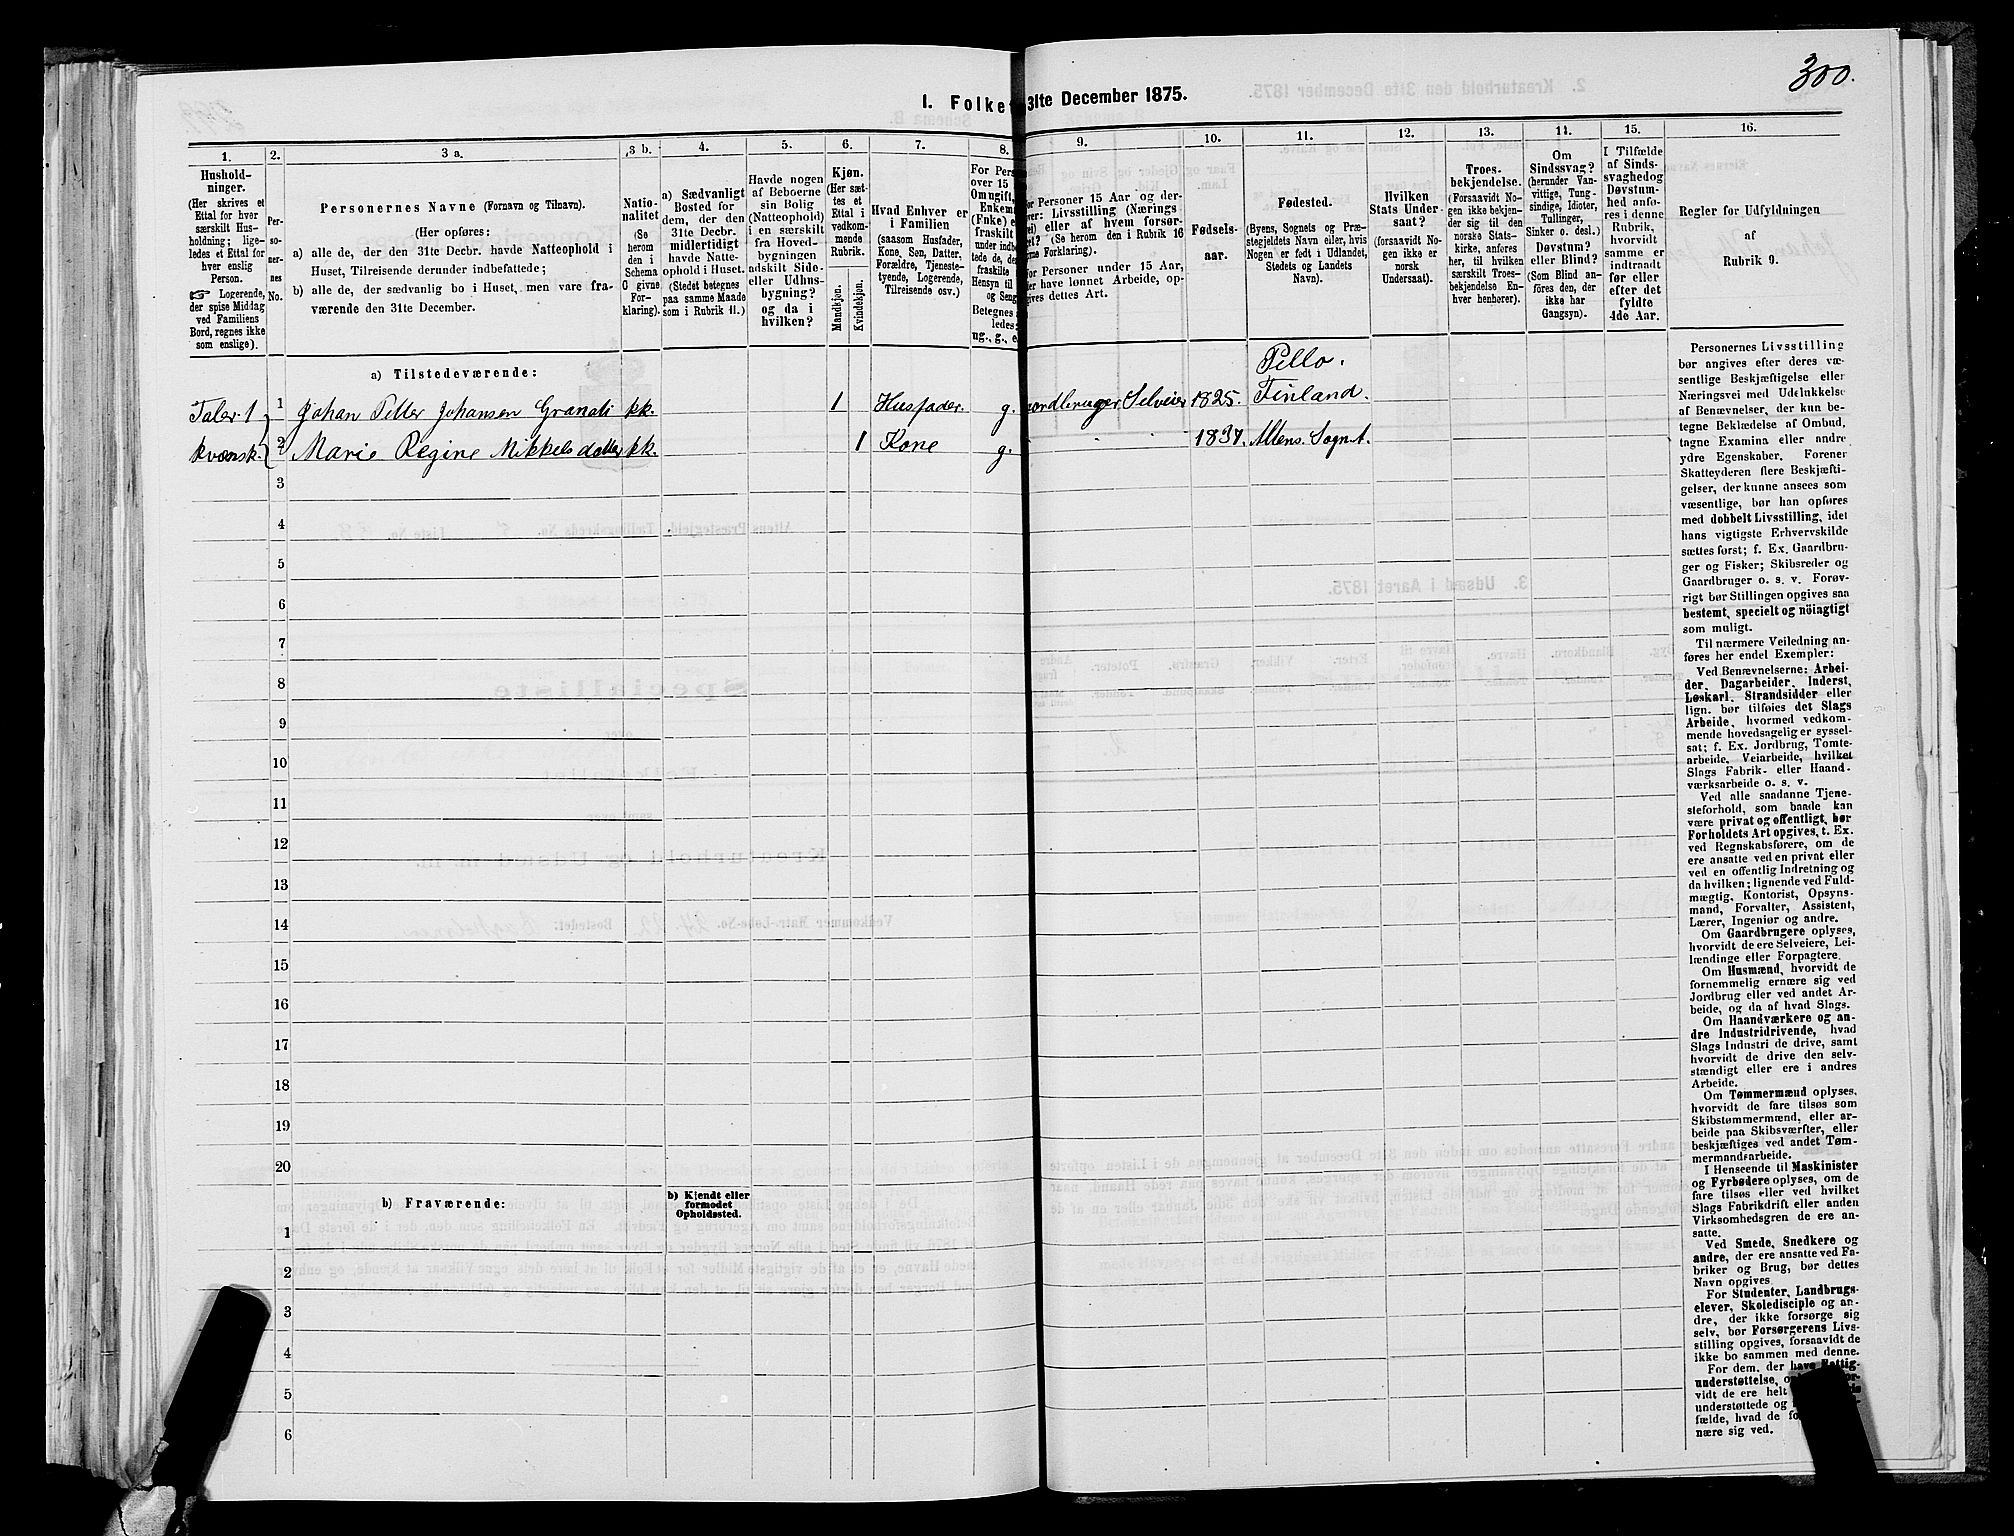 300.
I. Folket 31te December 1875.
1. 2. 3 a. 3 b. 4. 5. 6. 7. 8. 9. 10. 11. 12. 13. 14. 15. 16.
Hushold-
ninger.
(Her skrives et
Ettal for hver
særskilt Hus-
holdning; lige-
ledes et Ettal for
hver enslig
Person.
☞ Logerende,
der spise Middag
ved Familiens
Bord, regnes ikke
som enslige).
Per-
so-
ner-
nes
No.
Personernes Navne (Fornavn og Tilnavn).
(Her opføres:
a) alle de, der den 31te Decbr. havde Natteophold i
Huset, Tilreisende derunder indbefattede;
b) alle de, der sædvanlig bo i Huset, men vare fra-
værende den 31te December.
Natio-
nalitet
(Se
herom
den i
Schema
C givne
For-
klaring).
a) Sædvanligt
Bosted for
dem, der den
31te Decbr.
midlertidigt
havde Natte-
ophold i Huset.
(Stedet betegnes
paa samme Maade
som i Rubrik 11.)
Havde nogen
af Beboerne
sin Bolig
(Natteophold)
i en særskilt
fra Hoved-
bygningen
adskilt Side-
eller Udhus-
bygning?
og da i
hvilken?
Kjøn.
(Her sæt-
tes et
Ettal i
vedkom-
mende
Rubrik.
Mandkjøn.
Kvindekjøn.
Hvad Enhver er
i Familien
(saasom Husfader,
Kone, Søn, Datter,
Forældre, Tjeneste-
tyende, Logerende,
Tilreisende osv.)
For Pers
over 15
Om ugift,
Enkem
(Fnke) e
fraskilt
under indb
tede de, de
fraskilte
Hensyn til
og Seng
Betegnes
ledes:
ug., g., e
For Personer 15 Aar og der-
over: Livsstilling (Nærings
vei) eller af hvem forsør-
get? (Se herom den i Rubrik 16
givne Forklaring).
For Personer under 15 Aar,
der have lønnet Arbeide, op-
gives dettes Art.
Fødsels-
aar.
Fødested.
(Byens, Sognets og Præ-
stegjeldets Navn eller, hvis
Nogen er født i Udlandet,
Stedets og Landets
Navn).
Hvilken
Stats Under-
saat?
(forsaavidt No-
gen ikke er
norsk
Undersaat).
Troes-
bekjendelse.
(Forsaavidt No-
gen ikke bekjen-
der sig til den
norske Stats-
kirke, anføres
her, til hvilken
særskilt Troes-
bekjendelse En-
hver henhører).
Om
Sindssvag?
(herunder Van-
vittige, Tung-
sindige, Idioter,
Tullinger,
Sinker o. desl.)
Døvstum?
eller Blind?
(Som Blind an-
føres den, der
ikke har
Gangsyn).
I Tilfælde
af Sinds-
svaghed og
Døvstum-
hed anfø-
res i denne
Rubrik,
hvorvidt
samme er
indtraadt
før eller
efter det
fyldte
4de Aar.
Regler for Udfyldningen
af
Rubrik 9.
a) Tilstedeværende:
Pello.
Taler 1 1 Johan Petter Johansen Granati kk. 1 Husfader. g. Jordbruger Selveier 1825. Finland.
kvænsk. 2 Marie Regine Mikkelsdatter kk. 1 Kone g. 1837. Altens Sogn.
3
4
5
6
7
8
9
10
11
12
13
14
15
16
17
18
19
20
b) Fraværende:
b) Kjendt eller
formodet
Opholdssted.
1
2
3
4
5
6
Personernes Livsstilling
bør angives efter deres væ-
sentlige Beskjæftigelse eller
Næringsvei med Udelukkelse
af Benævnelser, der kun be-
tegne Beklædelse af Ombud,
tagne Examina eller andre
ydre Egenskaber. Forener
Skatteyderen flere Beskjæfti-
gelser, der kunne ansees som
væsentlige, bør han opføres
med dobbelt Livsstilling, idet
hans vigtigste Erhvervskilde
sættes først; f. Ex. Gaardbru-
ger og Fisker; Skibsreder og
Gaardbruger o. s. v. Forøv-
rigt bør Stillingen opgives saa
bestemt, specielt og nöiagtigt
som muligt.
Til nærmere Veiledning an-
føres her endel Exempler:
Ved Benævnelserne: Arbei-
der, Dagarbeider, Inderst,
Løskarl, Strandsidder eller
lign. bør tilføies det Slags
Arbeide, hvormed vedkom-
mende hovedsagelig er syssel-
sat; f. Ex. Jordbrug, Tomte-
arbeide, Veiarbeide, hvilket
Slags Fabrik- eller Haand-
værksarbeide o. s. v.
Ved alle saadanne Tjene-
steforhold, som baade kan
være privat og offentligt, bør
Forholdets Art opgives, t. Ex.
ved Regnskabsførere, om de
ere ansatte ved en privat eller
ved en offentlig Indretning og
da hvilken; lignende ved Fuld-
mægtig, Kontorist, Opsyns-
mand, Forvalter, Assistent,
Lærer, Ingeniør og andre.
Om Gaardbrugere oplyses,
hvorvidt de ere Selveiere, Lei-
lændinge eller Forpagtere.
Om Husmænd, hvorvidt de
fornemmelig ernære sig ved
Jordbrug eller ved andet Ar-
beide, og da af hvad Slags.
Om Haandværkere og an-
dre Industridrivende, hvad
Slags Industri de drive, samt
hvorvidt de drive den selv-
stændigt eller ere i andres
Arbeide.
Om Tømmermænd oplyses,
hvorvidt de fare tilsøs som
Skibstømmermænd, eller ar-
beide paa Skibsværfter, eller
beskjæftiges ved andet Tøm-
mermandsarbeide.
I Henseende til Maskinister
og Fyrbødere oplyses, om de
fare tilsøs eller ved hvilket
Slags Fabrikdrift eller anden
Virksomhedsgren de ere an-
satte.
Ved Smede, Snedkere og
andre, der ere ansatte ved Fa-
briker og Brug, bør dettes
Navn opgives.
For Studenter, Landbrugs-
elever, Skoledisciple og an-
dre, der ikke forsørge sig
selv, bør Forsørgerens Livs-
stilling opgives, forsaavidt de
ikke bo sammen med denne.
For dem, der have Fattig-
understøttelse, or-
vidt de ere helt
understøttede og
fælde, hvad de fo
nære sig ved.